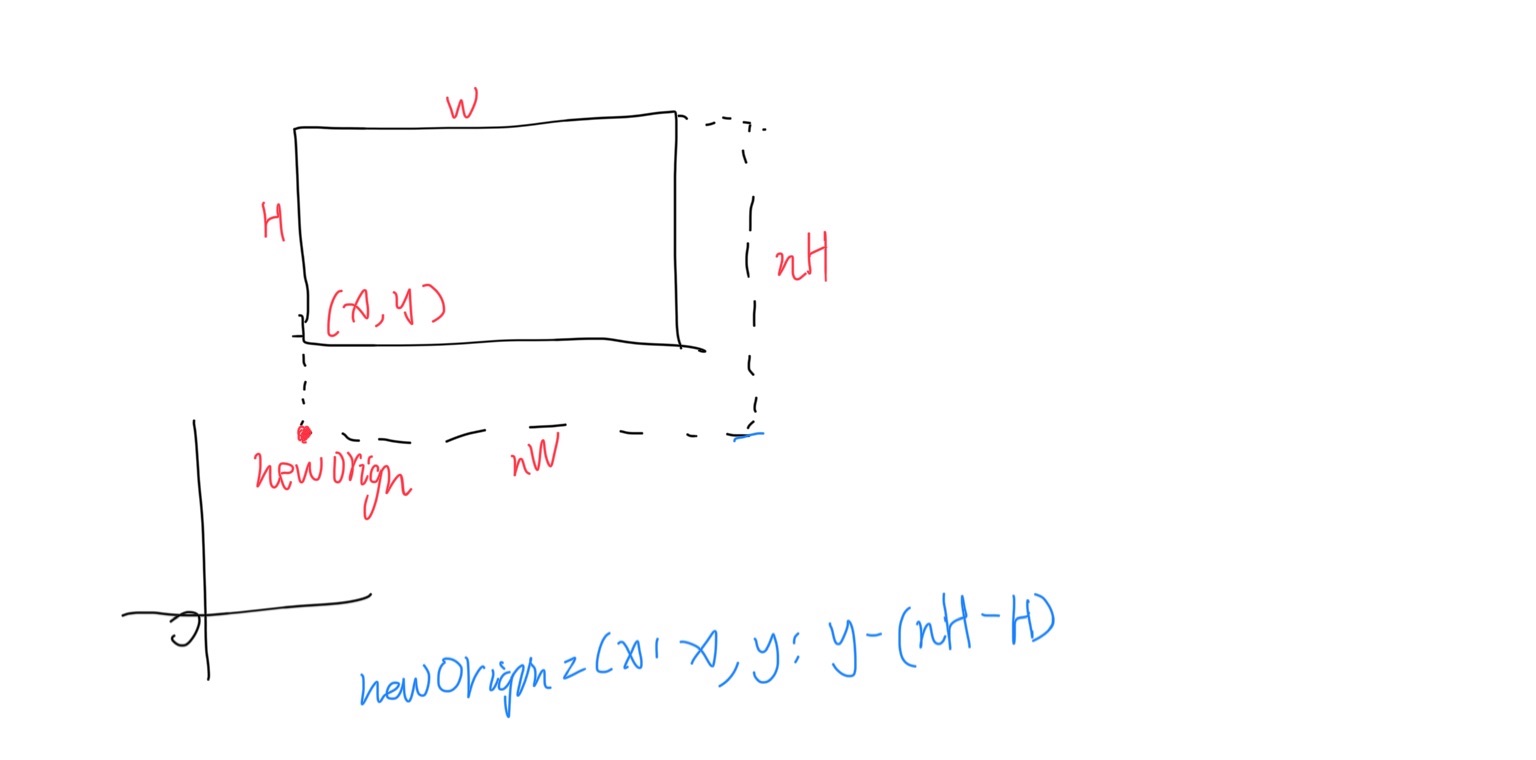 W
H
nH
(x, y)
new Orign
nW
O
new Orign = (x: x, y: y - (nH - H)